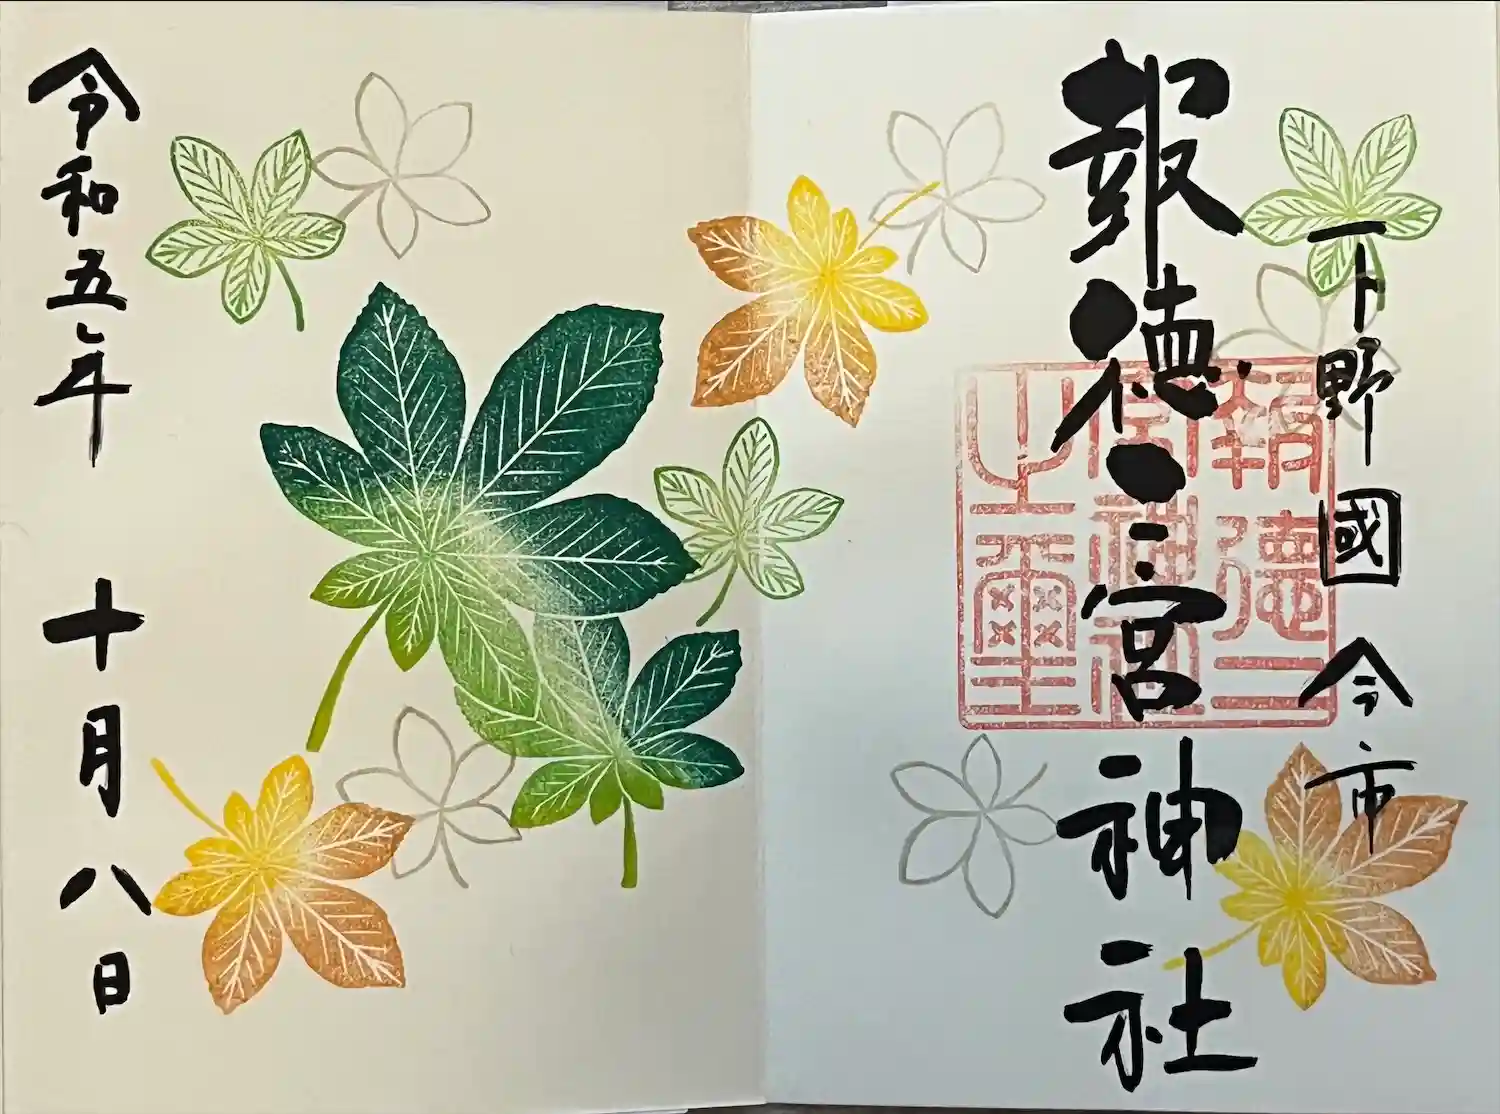 下野國今市
報徳二宮神社
報徳二宮神社之璽
令和五年 十月八日